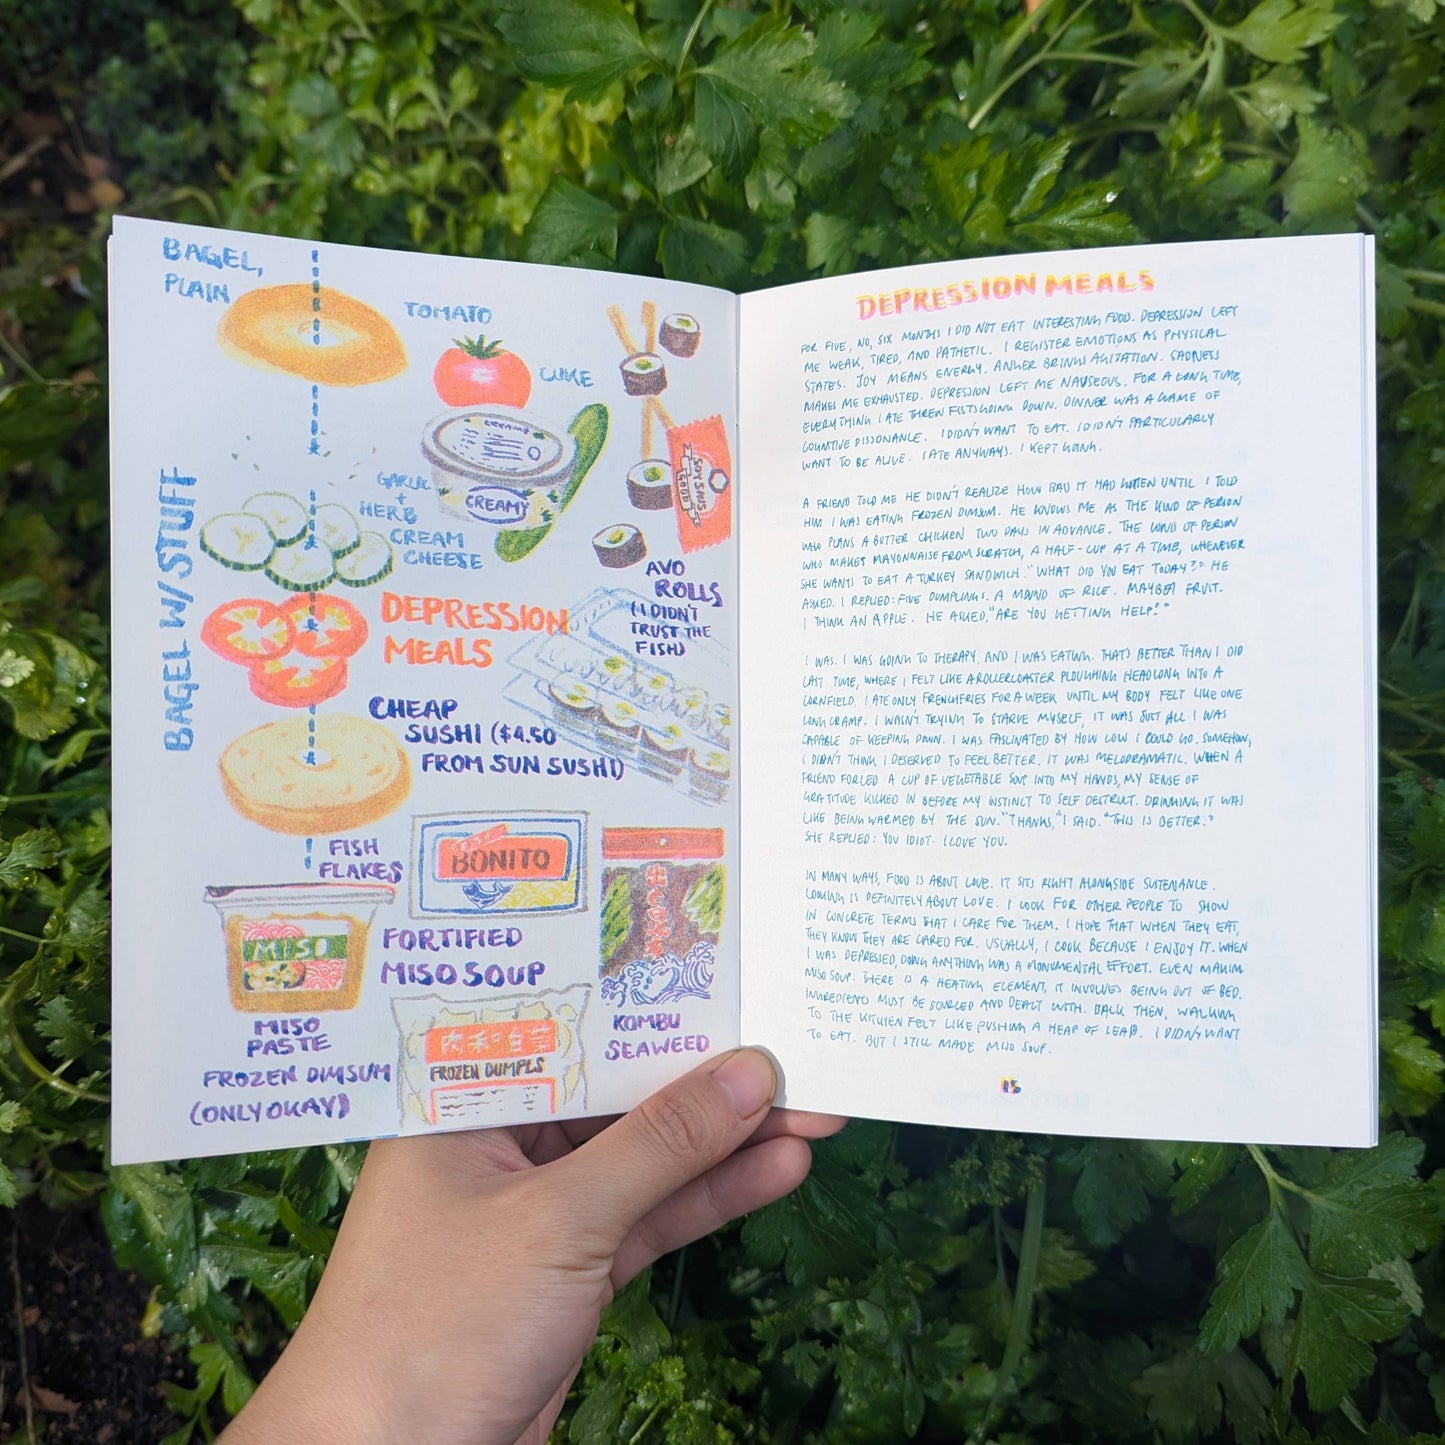 BAGEL,
PLAIN
TOMATO
CUKE
CREAMY
CREAMY
GARLIC
+
HERB
CREAM
CHEESE
BAGEL W/ STUFF
SOY SAUS
GOOD
AVO
ROLLS
(I DIDN'T
TRUST THE
FISH)
DEPRESSION
MEALS
CHEAP
SUSHI ($4.50
FROM SUN SUSHI)
FISH
FLAKES
BONITO
MISO
FORTIFIED
MISO SOUP
MISO
PASTE
KOMBU
SEAWEED
FROZEN DIMSUM
(ONLY OKAY)
FROZEN DUMPLS
DEPRESSION MEALS
FOR FIVE, NO, SIX MONTHS I DID NOT EAT INTERESTING FOOD. DEPRESSION LEFT
ME WEAK, TIRED, AND PATHETIC. I REGISTER EMOTIONS AS PHYSICAL
STATES. JOY MEANS ENERGY. ANGER BRINGS AGITATION. SADNESS
MAKES ME EXHAUSTED. DEPRESSION LEFT ME NAUSEOUS. FOR A LONG TIME,
EVERYTHING I ATE GOING DOWN. DINNER WAS A GAME OF
COGNITIVE DISSONANCE. I DIDN'T WANT TO EAT. I DIDN'T PARTICULARLY
WANT TO BE ALIVE. I ATE ANYWAYS. I KEPT GOING.
A FRIEND TOLD ME HE DIDN'T REALIZE HOW BAD IT HAD GOTTEN UNTIL I TOLD
HIM I WAS EATING FROZEN DIMSUM. HE KNOWS ME AS THE KIND OF PERSON
WHO PLANS A BUTTER CHICKEN TWO DAYS IN ADVANCE. THE KIND OF PERSON
WHO MAKES MAYONNAISE FROM SCRATCH, A HALF-CUP AT A TIME, WHENEVER
SHE WANTS TO EAT A TURKEY SANDWICH. "WHAT DID YOU EAT TODAY?" HE
ASKED. I REPLIED: FIVE DUMPLINGS. A MOUND OF RICE. MAYBE? FRUIT.
I THINK AN APPLE. HE ASKED, "ARE YOU GETTING HELP?"
I WAS. I WAS GOING TO THERAPY, AND I WAS EATING. THAT'S BETTER THAN I DID
LAST TIME, WHERE I FELT LIKE A ROLLERCOASTER PLOUGHING HEADLONG INTO A
CORNFIELD. I ATE ONLY FRENCH FRIES FOR A WEEK UNTIL MY BODY FELT LIKE ONE
LONG CRAMP. I WASN'T TRYING TO STARVE MYSELF, IT WAS JUST ALL I WAS
CAPABLE OF KEEPING DOWN. I WAS FASCINATED BY HOW LOW I COULD GO. SOMEHOW,
I DIDN'T THINK I DESERVED TO FEEL BETTER. IT WAS MELODRAMATIC. WHEN A
FRIEND FORCED A CUP OF VEGETABLE SOUP INTO MY HANDS, MY SENSE OF
GRATITUDE KICKED IN BEFORE MY INSTINCT TO SELF DESTRUCT. DRINKING IT WAS
LIKE BEING WARMED BY THE SUN. "THANKS," I SAID. "THIS IS BETTER."
SHE REPLIED: YOU IDIOT. I LOVE YOU.
IN MANY WAYS, FOOD IS ABOUT LOVE. IT SITS RIGHT ALONGSIDE SUSTENANCE.
COOKING IS DEFINITELY ABOUT LOVE. I COOK FOR OTHER PEOPLE TO SHOW
IN CONCRETE TERMS THAT I CARE FOR THEM. I HOPE THAT WHEN THEY EAT,
THEY KNOW THEY ARE CARED FOR. USUALLY, I COOK BECAUSE I ENJOY IT. WHEN
I WAS DEPRESSED, DOING ANYTHING WAS A MONUMENTAL EFFORT. EVEN MAKING
MISO SOUP. THERE IS A HEATING ELEMENT, IT INVOLVES BEING OUT OF BED.
INGREDIENTS MUST BE SOURCED AND DEALT WITH. BACK THEN, WALKING
TO THE KITCHEN FELT LIKE PUSHING A HEAP OF LEAD. I DIDN'T WANT
TO EAT. BUT I STILL MADE MISO SOUP.
15